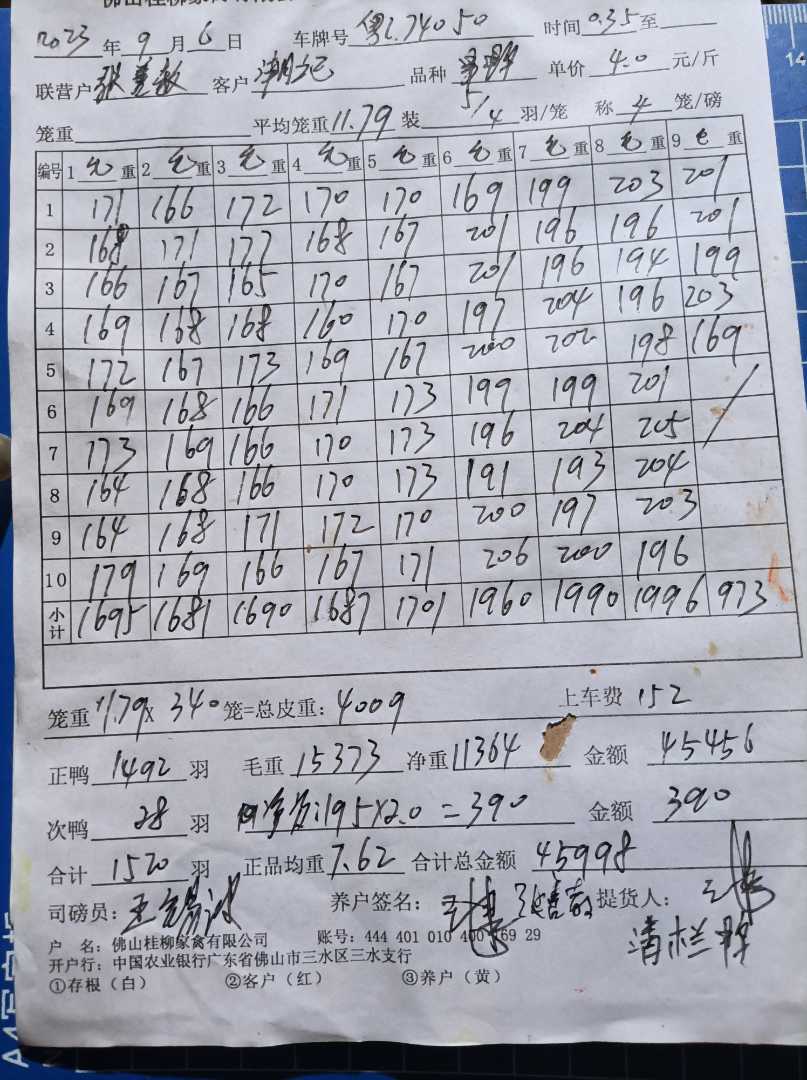 2023 年 9 月 6 日 车牌号 粤L74050 时间 0.35 至
联营户 张善敏 客户 潮记 品种 单价 4.0 元/斤
笼重 平均笼重 11.79 装 5/4 羽/笼 称 4 笼/磅
编号 1 毛 重 2 毛 重 3 毛 重 4 毛 重 5 毛 重 6 毛 重 7 毛 重 8 毛 重 9 毛 重
1 171 166 172 170 170 169 199 203 201
2 168 171 177 168 167 201 196 196 201
3 166 167 165 170 167 201 196 194 199
4 169 168 168 160 170 197 204 196 203
5 172 167 173 169 167 200 202 198 169
6 169 168 166 171 173 199 199 201
7 173 169 166 170 173 196 204 205
8 164 168 166 170 173 191 193 204
9 164 168 171 172 170 200 197 203
10 179 169 166 167 171 206 200 196
小计 1695 1681 1690 1687 1701 1960 1990 1996 973
笼重 11.79 X 340 笼=总皮重: 4009 上车费 152
正鸭 1492 羽 毛重 15373 净重 11364 金额 45456
次鸭 28 羽 195X2.0=390 金额 390
合计 1520 羽 正品均重 7.62 合计总金额 45998
司磅员: 养户签名: 张善敏 提货人:
户 名: 佛山桂柳家禽有限公司 账号: 444 401 010 400 169 29
开户行: 中国农业银行广东省佛山市三水区三水支行
①存根(白) ②客户(红) ③养户(黄)
14